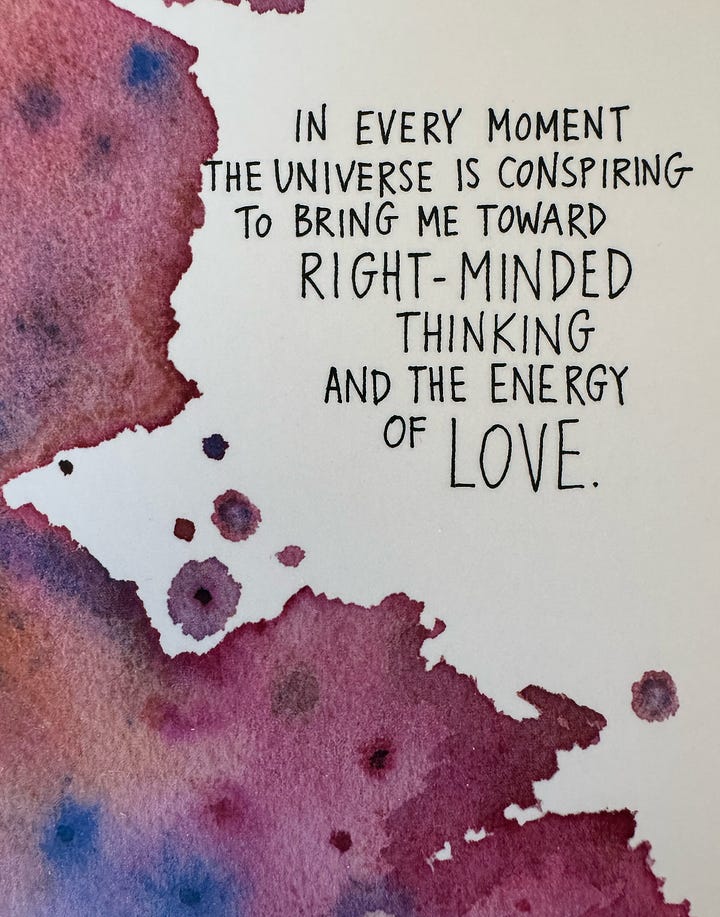 IN EVERY MOMENT
THE UNIVERSE IS CONSPIRING
TO BRING ME TOWARD
RIGHT-MINDED
THINKING
AND THE ENERGY
OF LOVE.